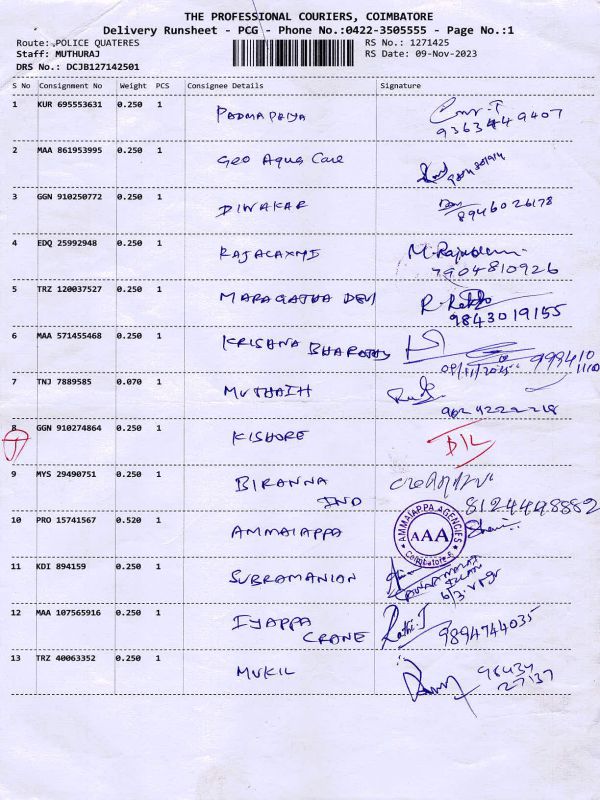 THE PROFESSIONAL COURIERS, COIMBATORE
Delivery Runsheet - PCG - Phone No.:0422-3505555 - Page No.:1
Route: ,POLICE QUATERES RS No.: 1271425
Staff: MUTHURAJ RS Date: 09-Nov-2023
DRS No.: DCJB127142501
S No Consignment No Weight PCS Consignee Details Signature
1 KUR 695553631 0.250 1 PADMAPRIYA
9363449407
2 MAA 861953995 0.250 1 Geo Aqua Care
3 GGN 910250772 0.250 1 DIWAKAR
8946026178
4 EDQ 25992948 0.250 1 RAJALAXMI
7904810926
5 TRZ 120037527 0.250 1 MARAGATHA DEVI
9843019155
6 MAA 571455468 0.250 1 KRISHNA BHARATHY
7 TNJ 7889585 0.070 1 MUTHAIH
8 GGN 910274864 0.250 1 KISHORE D/L
9 MYS 29490751 0.250 1 BIRANNA
IND 8124498882
10 PRO 15741567 0.520 1 AMMAIAPPA AMMAIAPPA AGENCIES AAA Coimbatore-6
11 KDI 894159 0.250 1 SUBRAMANIAN
12 MAA 107565916 0.250 1 IYAPPA
CRANE Rathi.J 9894744035
13 TRZ 40063352 0.250 1 MUKIL 96434
27137